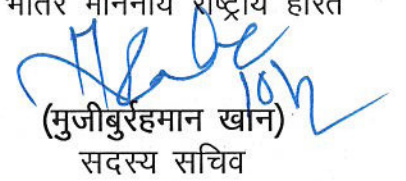 भीतर माननीय राष्ट्रीय हरित
10/2
(मुजीबुर्रहमान खान)
सदस्य सचिव